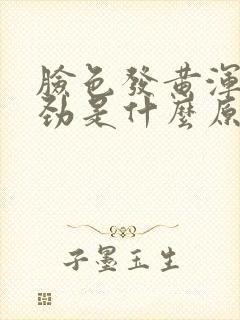 臉色發黄渾
劲是什麼原
子墨玉生